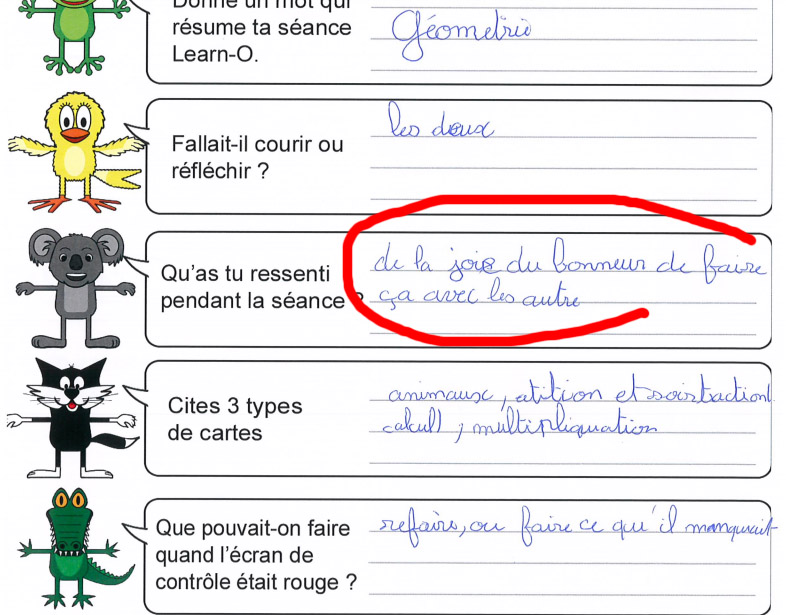 Donne un mot qui
résume ta séance
Learn-O.
Géometrie
Fallait-il courir ou
réfléchir ?
les deux
Qu'as tu ressenti
pendant la séance ?
de la joie du bonneur de faire
ça avec les autre
Cites 3 types
de cartes
animaux, atition et soistraction
calcull, multipliquation
Que pouvait-on faire
quand l'écran de
contrôle était rouge ?
refaire, ou faire ce qu'il manquait